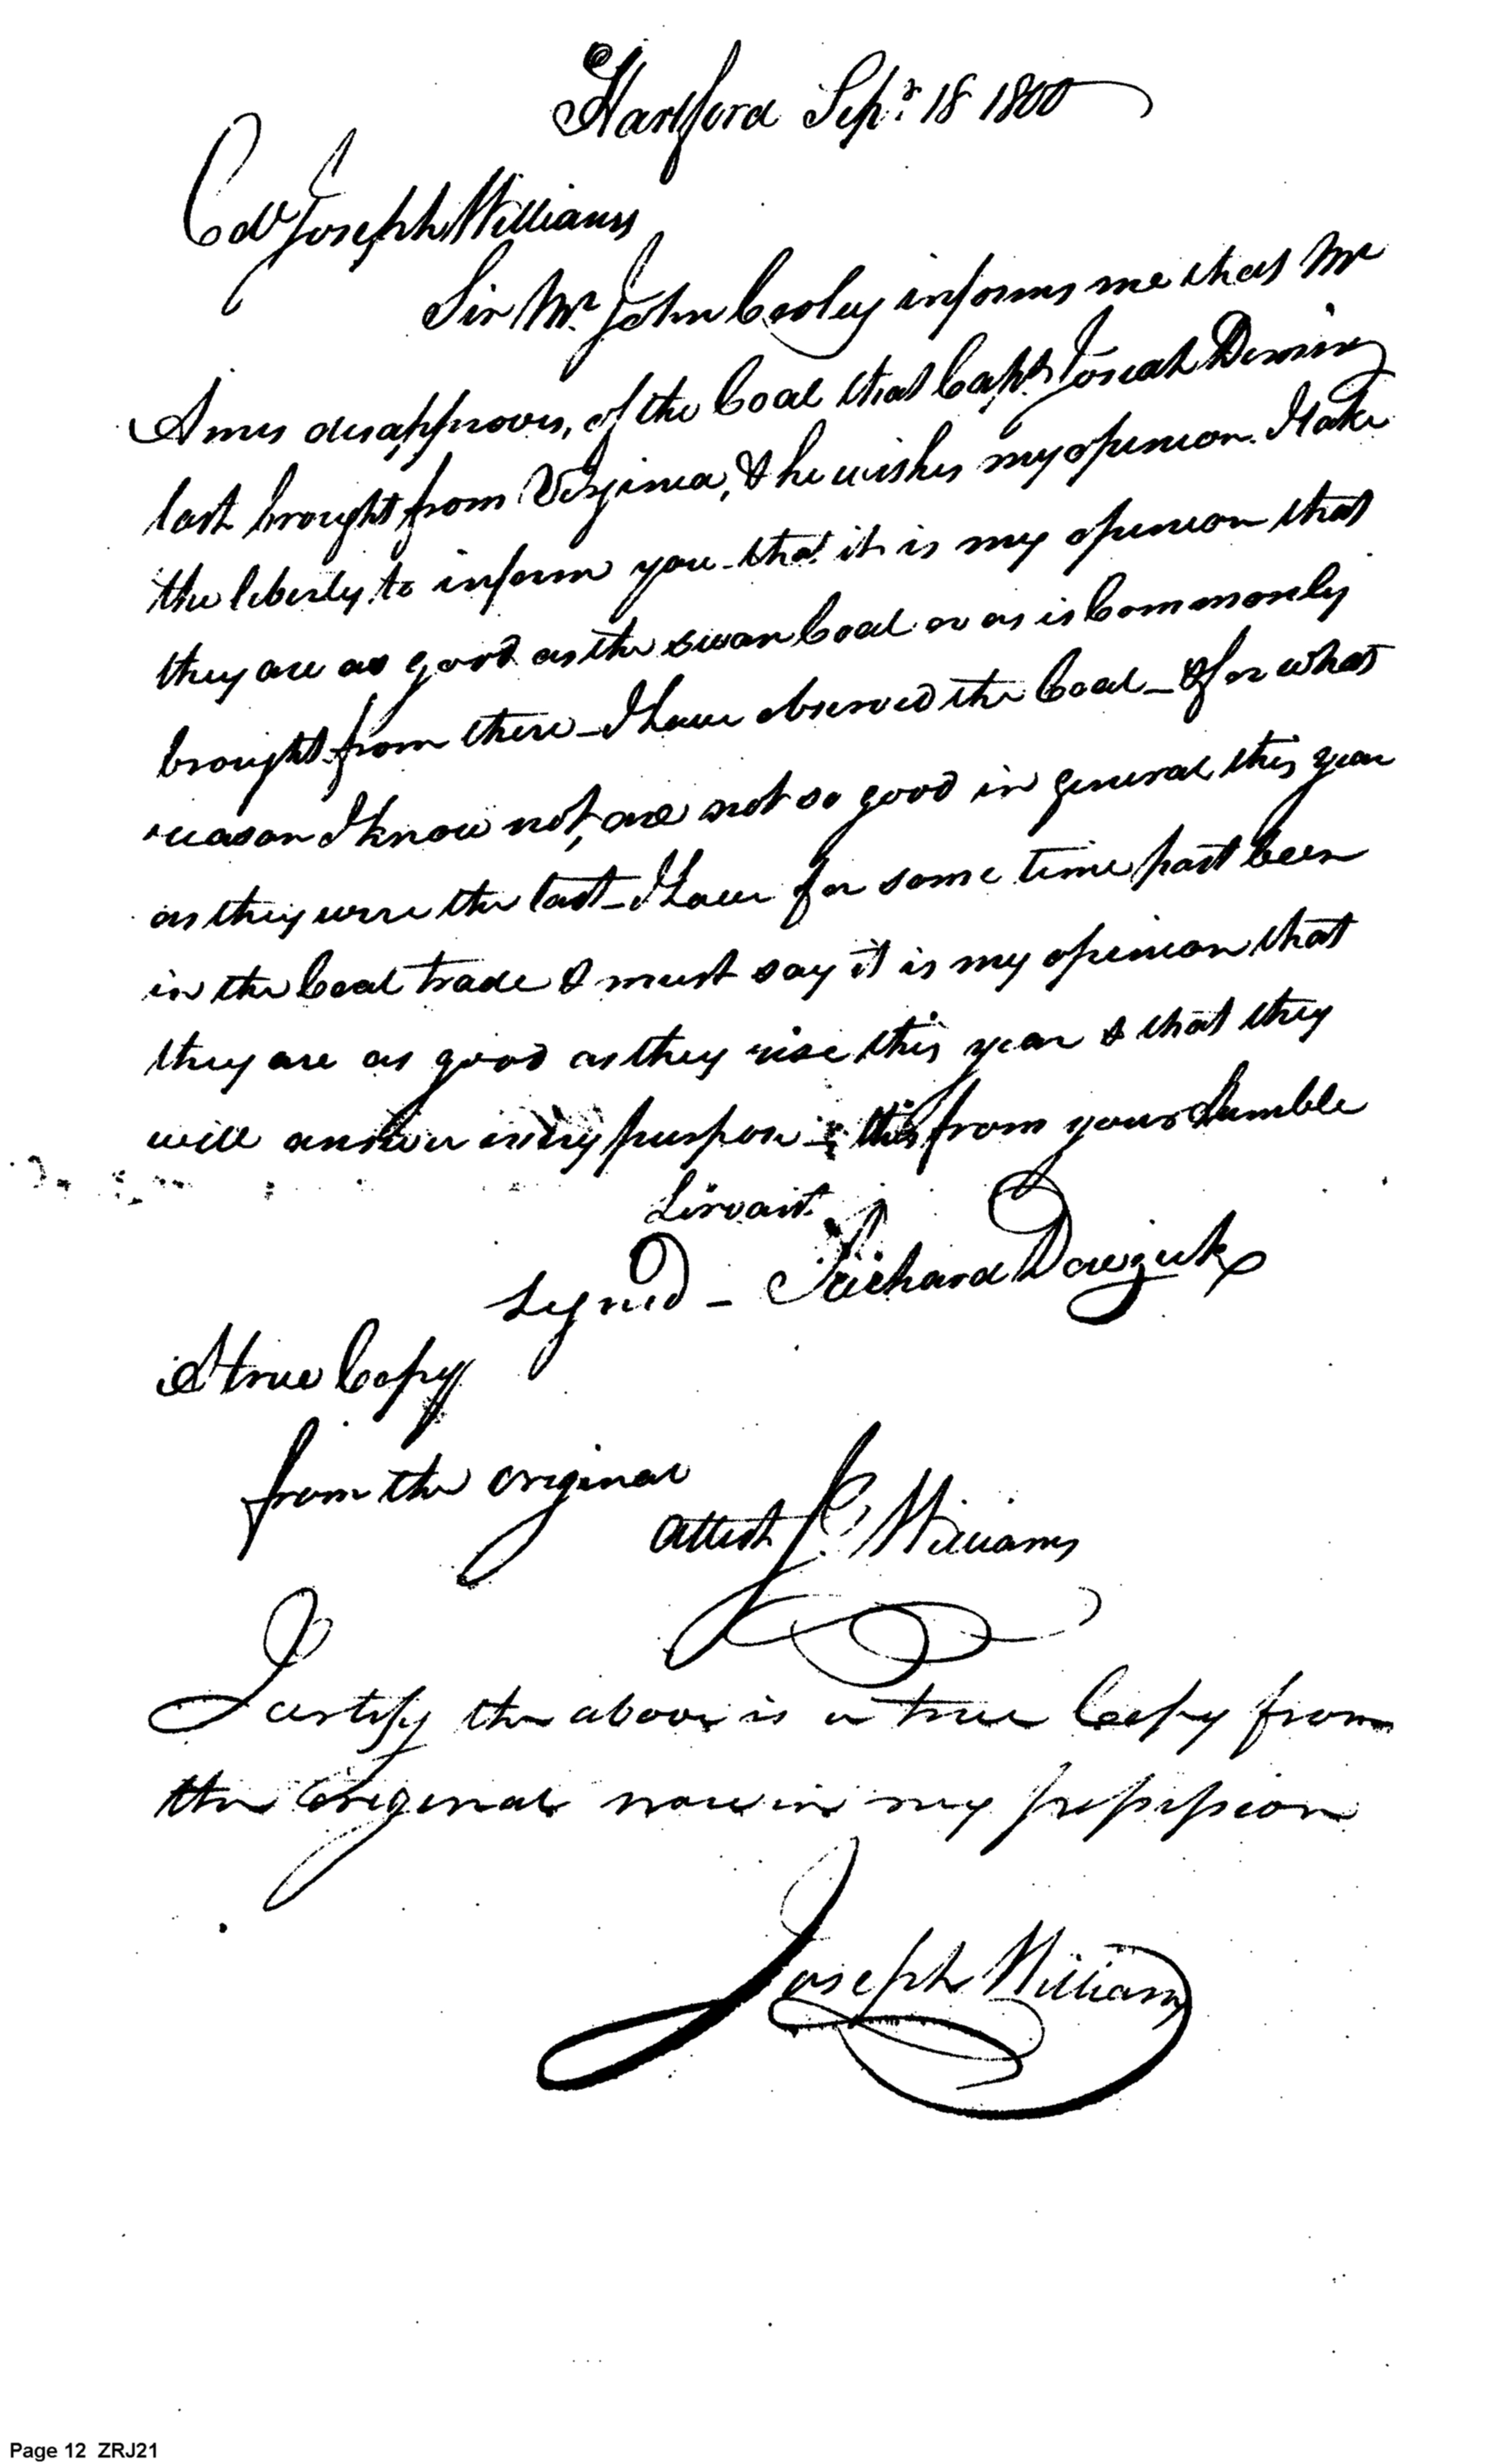 Hartford Sepr. 18 1800
Col Joseph Williams
Sir Mr. John Cooley informs me that Mr
Ames disapproves, of the Coal that Capt. Josiah Deming
last brought from Virginia, & he wishes my opinion. I take
the liberty to inform you that it is my opinion that
they are as good as the swan Coal or as is Commonly
brought from there - I have observed the Coal - & for what
reason I know not, are not so good in general this year
as they were the last - I have for some time past been
in the Coal trade & must say it is my opinion that
they are as good as they rise this year & that they
will answer every purpose - this from your Humble
Servant
Signed - Richard
A true Copy
from the original
attest J. Williams
I certify the above is a true Copy from
the original now in my possession
Joseph Williams
Page 12 ZRJ21